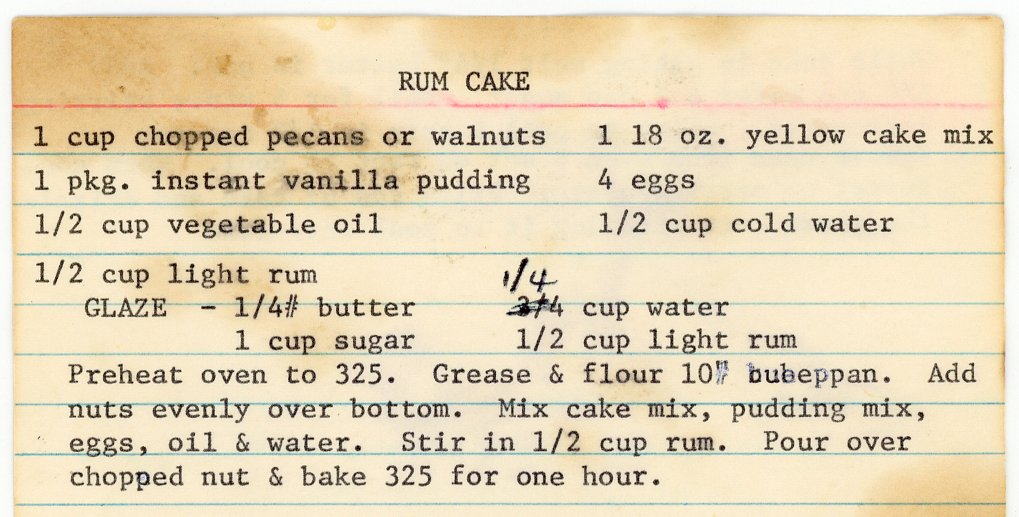 RUM CAKE
1 cup chopped pecans or walnuts 1 18 oz. yellow cake mix
1 pkg. instant vanilla pudding 4 eggs
1/2 cup vegetable oil 1/2 cup cold water
1/2 cup light rum 1/4
GLAZE - 1/4# butter 3/4 cup water
1 cup sugar 1/2 cup light rum
Preheat oven to 325. Grease & flour 10" Add
nuts evenly over bottom. Mix cake mix, pudding mix,
eggs, oil & water. Stir in 1/2 cup rum. Pour over
chopped nut & bake 325 for one hour.